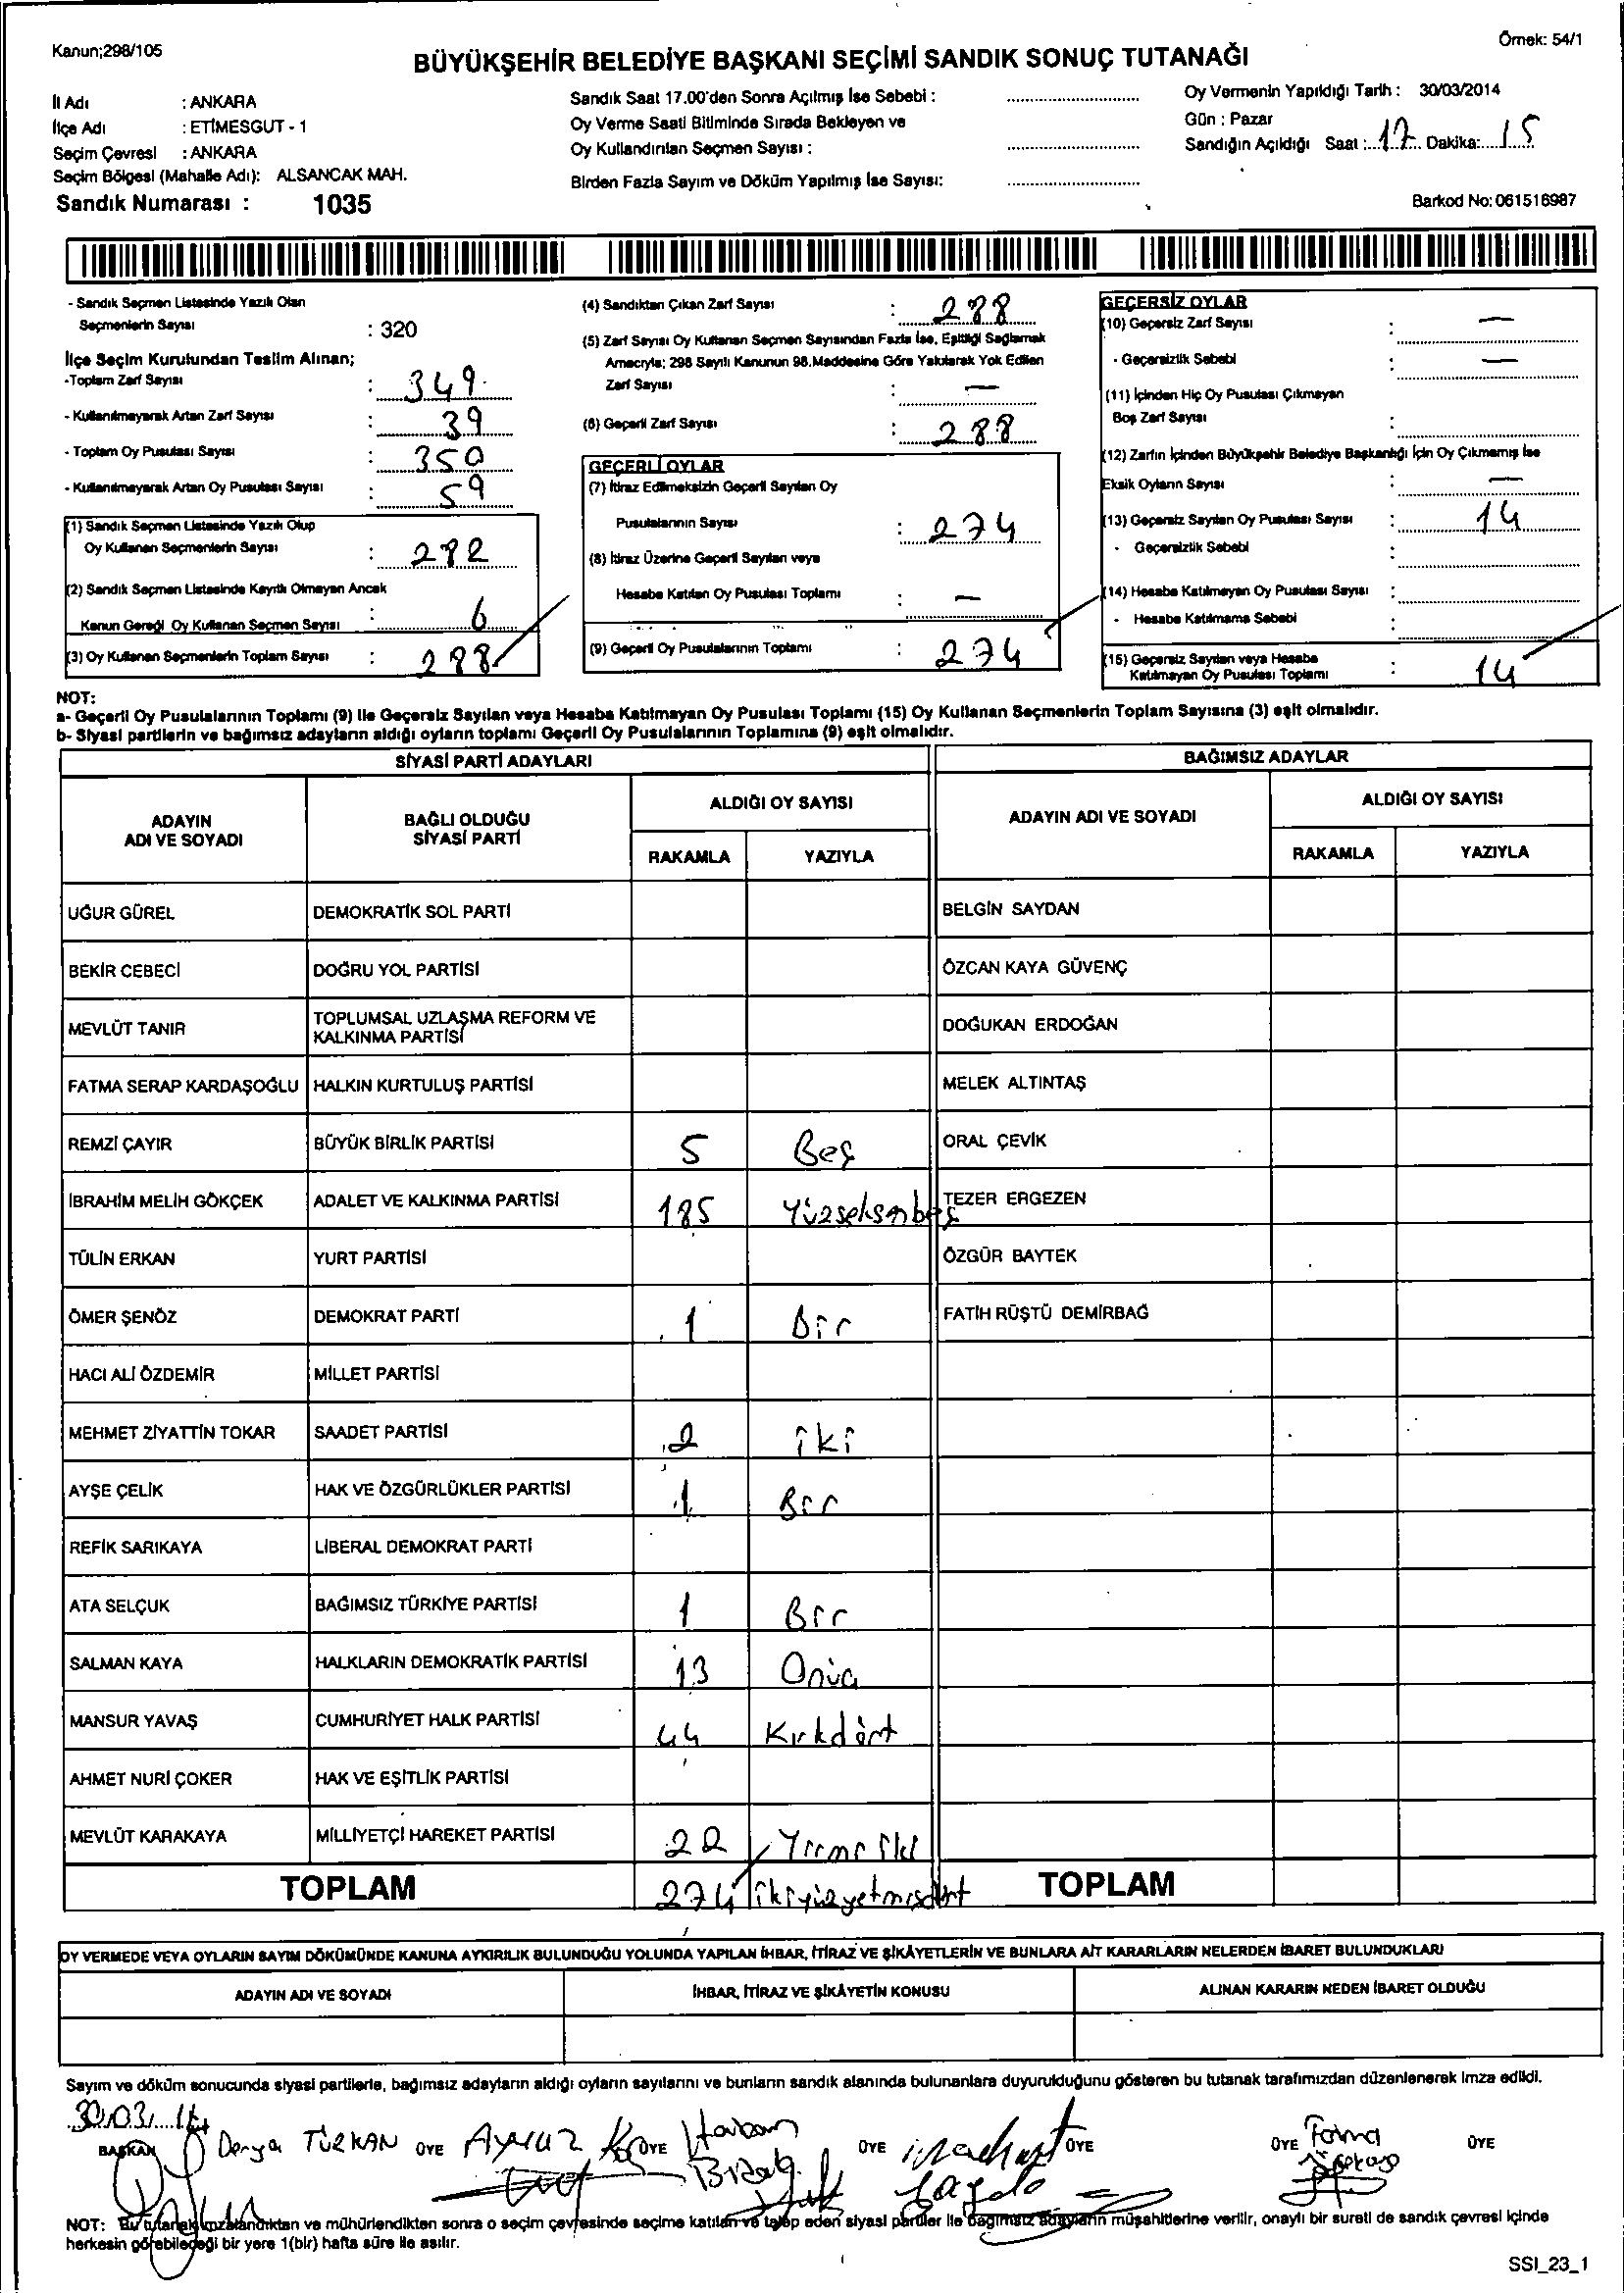 Kanun;298/105
Örnek: 54/1
BÜYÜKŞEHİR BELEDİYE BAŞKANI SEÇİMİ SANDIK SONUÇ TUTANAĞI
İl Adı : ANKARA
İlçe Adı : ETİMESGUT - 1
Seçim Çevresi : ANKARA
Seçim Bölgesi (Mahalle Adı): ALSANCAK MAH.
Sandık Numarası : 1035
Sandık Saat 17.00'den Sonra Açılmış İse Sebebi :
Oy Verme Saati Bitiminde Sırada Bekleyen ve
Oy Kullandırılan Seçmen Sayısı :
Birden Fazla Sayım ve Döküm Yapılmış İse Sayısı:
Oy Vermenin Yapıldığı Tarih : 30/03/2014
Gün : Pazar
Sandığın Açıldığı Saat : 17 Dakika: 15
Barkod No: 061516987
- Sandık Seçmen Listesinde Yazılı Olan
Seçmenlerin Sayısı : 320
İlçe Seçim Kurulundan Teslim Alınan;
-Toplam Zarf Sayısı : 349
- Kullanılmayarak Artan Zarf Sayısı : 39
- Toplam Oy Pusulası Sayısı : 350
- Kullanılmayarak Artan Oy Pusulası Sayısı : 59
(1) Sandık Seçmen Listesinde Yazılı Olup
Oy Kullanan Seçmenlerin Sayısı : 282
(2) Sandık Seçmen Listesinde Kayıtlı Olmayan Ancak
Kanun Gereği Oy Kullanan Seçmen Sayısı : 6
(3) Oy Kullanan Seçmenlerin Toplam Sayısı : 288
(4) Sandıktan Çıkan Zarf Sayısı : 288
(5) Zarf Sayısı Oy Kullanan Seçmen Sayısından Fazla İse, Eşitliği Sağlamak
Amacıyla; 298 Sayılı Kanunun 98.Maddesine Göre Yakılarak Yok Edilen
Zarf Sayısı : —
(6) Geçerli Zarf Sayısı : 288
GEÇERLİ OYLAR
(7) İtiraz Edilmeksizin Geçerli Sayılan Oy
Pusulalarının Sayısı : 274
(8) İtiraz Üzerine Geçerli Sayılan veya
Hesaba Katılan Oy Pusulası Toplamı : —
(9) Geçerli Oy Pusulalarının Toplamı : 274
GEÇERSİZ OYLAR
(10) Geçersiz Zarf Sayısı : —
- Geçersizlik Sebebi : —
(11) İçinden Hiç Oy Pusulası Çıkmayan
Boş Zarf Sayısı :
(12) Zarfın İçinden Büyükşehir Belediye Başkanlığı İçin Oy Çıkmamış İse
Eksik Oyların Sayısı : —
(13) Geçersiz Sayılan Oy Pusulası Sayısı : 14
- Geçersizlik Sebebi :
(14) Hesaba Katılmayan Oy Pusulası Sayısı :
- Hesaba Katılmama Sebebi :
(15) Geçersiz Sayılan veya Hesaba
Katılmayan Oy Pusulası Toplamı : 14
NOT:
a- Geçerli Oy Pusulalarının Toplamı (9) ile Geçersiz Sayılan veya Hesaba Katılmayan Oy Pusulası Toplamı (15) Oy Kullanan Seçmenlerin Toplam Sayısına (3) eşit olmalıdır.
b- Siyasi partilerin ve bağımsız adayların aldığı oyların toplamı Geçerli Oy Pusulalarının Toplamına (9) eşit olmalıdır.
SİYASİ PARTİ ADAYLARI BAĞIMSIZ ADAYLAR
ADAYIN
ADI VE SOYADI
BAĞLI OLDUĞU
SİYASİ PARTİ
ALDIĞI OY SAYISI
RAKAMLA YAZIYLA
ADAYIN ADI VE SOYADI
ALDIĞI OY SAYISI
RAKAMLA YAZIYLA
UĞUR GÜREL DEMOKRATİK SOL PARTİ BELGİN SAYDAN
BEKİR CEBECİ DOĞRU YOL PARTİSİ ÖZCAN KAYA GÜVENÇ
MEVLÜT TANIR TOPLUMSAL UZLAŞMA REFORM VE
KALKINMA PARTİSİ DOĞUKAN ERDOĞAN
FATMA SERAP KARDAŞOĞLU HALKIN KURTULUŞ PARTİSİ MELEK ALTINTAŞ
REMZİ ÇAYIR BÜYÜK BİRLİK PARTİSİ 5 Beş ORAL ÇEVİK
İBRAHİM MELİH GÖKÇEK ADALET VE KALKINMA PARTİSİ 185 Yüzseksenbeş TEZER ERGEZEN
TÜLİN ERKAN YURT PARTİSİ ÖZGÜR BAYTEK
ÖMER ŞENÖZ DEMOKRAT PARTİ 1 Bir FATİH RÜŞTÜ DEMİRBAĞ
HACI ALİ ÖZDEMİR MİLLET PARTİSİ
MEHMET ZİYATTİN TOKAR SAADET PARTİSİ 2 iki
AYŞE ÇELİK HAK VE ÖZGÜRLÜKLER PARTİSİ 1 Bir
REFİK SARIKAYA LİBERAL DEMOKRAT PARTİ
ATA SELÇUK BAĞIMSIZ TÜRKİYE PARTİSİ 1 Bir
SALMAN KAYA HALKLARIN DEMOKRATİK PARTİSİ 13 Onüç
MANSUR YAVAŞ CUMHURİYET HALK PARTİSİ 44 Kırkdört
AHMET NURİ ÇOKER HAK VE EŞİTLİK PARTİSİ
MEVLÜT KARAKAYA MİLLİYETÇİ HAREKET PARTİSİ 22 Yirmi iki
TOPLAM 274 ikiyüzyetmişdört TOPLAM
OY VERMEDE VEYA OYLARIN SAYIM DÖKÜMÜNDE KANUNA AYKIRILIK BULUNDUĞU YOLUNDA YAPILAN İHBAR, İTİRAZ VE ŞİKÂYETLERİN VE BUNLARA AİT KARARLARIN NELERDEN İBARET BULUNDUKLARI
ADAYIN ADI VE SOYADI İHBAR, İTİRAZ VE ŞİKÂYETİN KONUSU ALINAN KARARIN NEDEN İBARET OLDUĞU
Sayım ve döküm sonucunda siyasi partilerle, bağımsız adayların aldığı oyların sayılarını ve bunların sandık alanında bulunanlara duyurulduğunu gösteren bu tutanak tarafımızdan düzenlenerek imza edildi.
30.03.14
BAŞKAN Derya TÜRKAN ÜYE ÜYE ÜYE ÜYE ÜYE Fatma ÜYE
NOT: Bu tutanak imzalandıktan ve mühürlendikten sonra o seçim çevresinde seçime katılan ve talep eden siyasi partiler ile bağımsız adayların müşahitlerine verilir, onaylı bir sureti de sandık çevresi içinde
herkesin görebileceği bir yere 1(bir) hafta süre ile asılır.
SSI_23_1